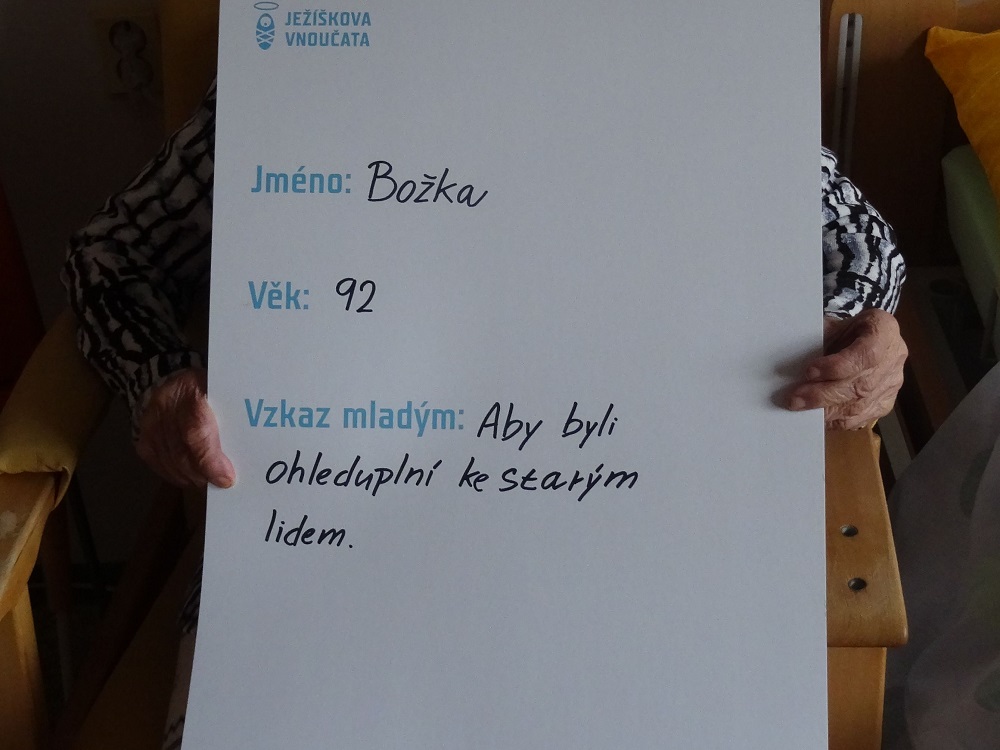 JEŽÍŠKOVA
VNOUČATA
Jméno: Božka
Věk: 92
Vzkaz mladým: Aby byli
ohleduplní ke starým
lidem.